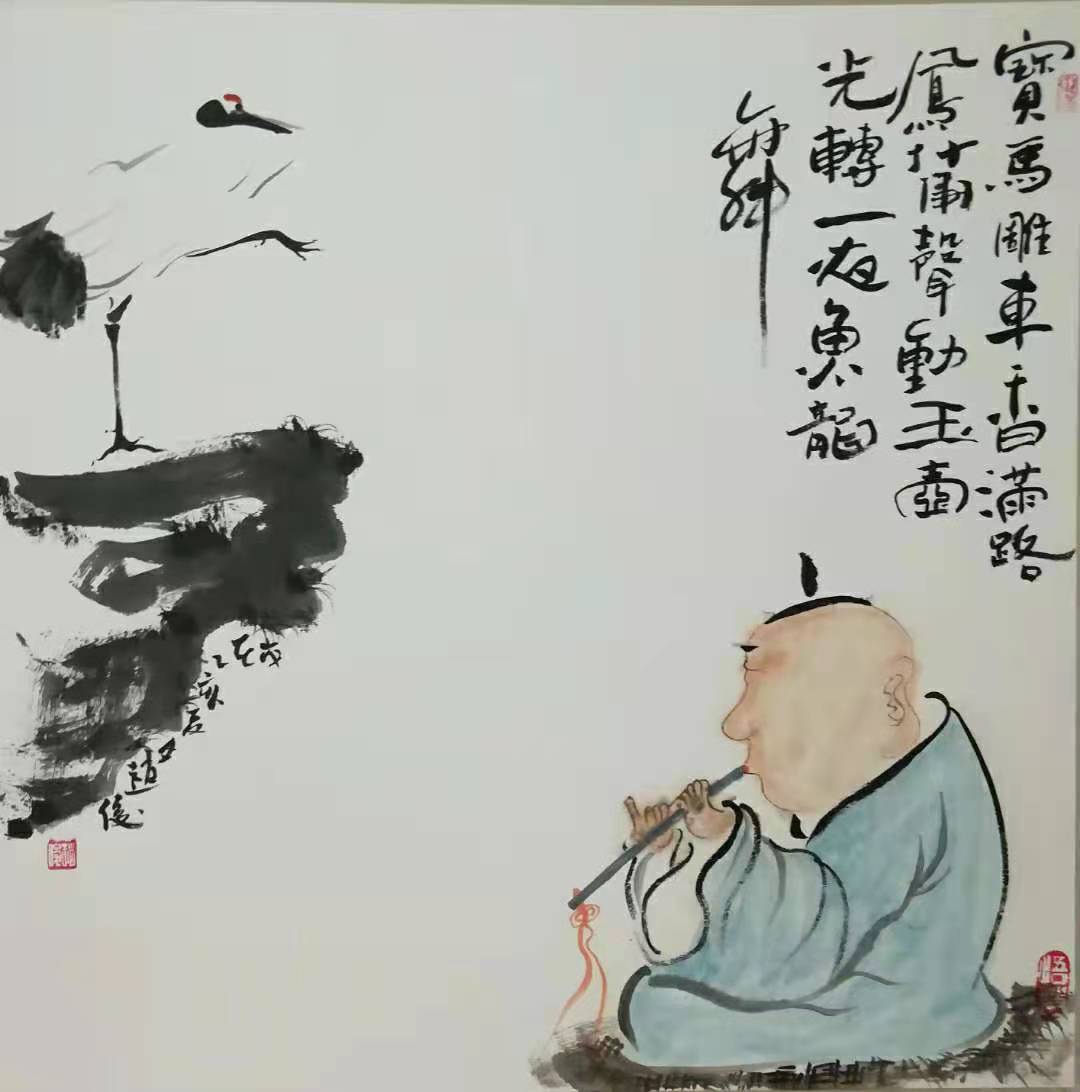 寶馬雕車香滿路
鳳簫聲動玉壺
光轉一夜魚龍
舞
亥
趙